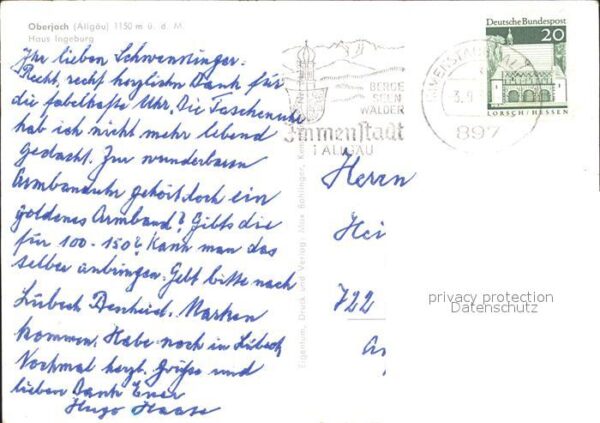 Oberjoch (Allgäu) 1150 m ü. d. M.
Haus Ingeburg
Ihr lieben Schwenninger.
Recht, recht herzlichen Dank für
die fabelhafte Uhr. Die Taschenuhr
hab ich nicht mehr lebend
gedacht. Zur wunderbaren
Armbanduhr gehört doch ein
goldenes Armband? Gibts die
für 100-150? Kann man das
selber anbringen. Gebt bitte nach
Lübeck Bescheid. Marken
kommen. Habe noch in Lübeck
Nochmal herzl. Grüsse und
lieben Dank Euer
Hugo Haase
Eigentum, Druck und Verlag: Max
BERGE
SEEN
WÄLDER
Immenstadt
i ALLGÄU
3.9
897
Deutsche Bundespost
20
LORSCH/HESSEN
Herrn
Hei
722
privacy protection
Datenschutz